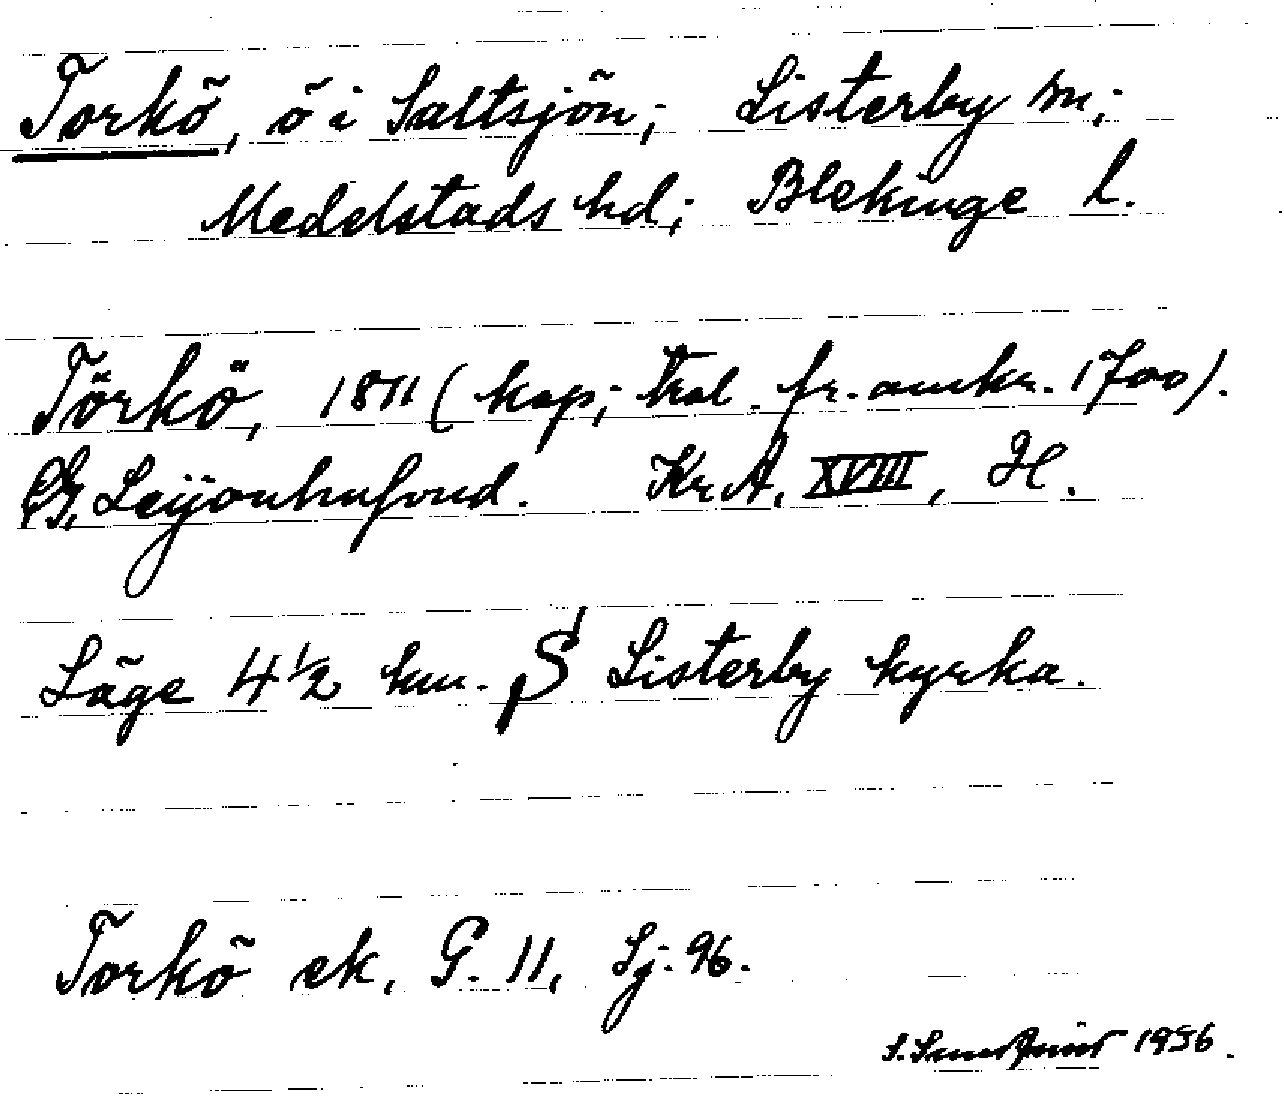 Torkö, ö i Saltsjön; Listerby sn;
Medelstads hd; Blekinge l.
Törkö, 1811 (kop; trol. fr. omkr. 1700).
G. Leijonhufvud. Kr. A. XVIII, H.
Läge 4½ km. S Listerby kyrka.
Torkö ek. G. 11, Sj. 96.
1956.